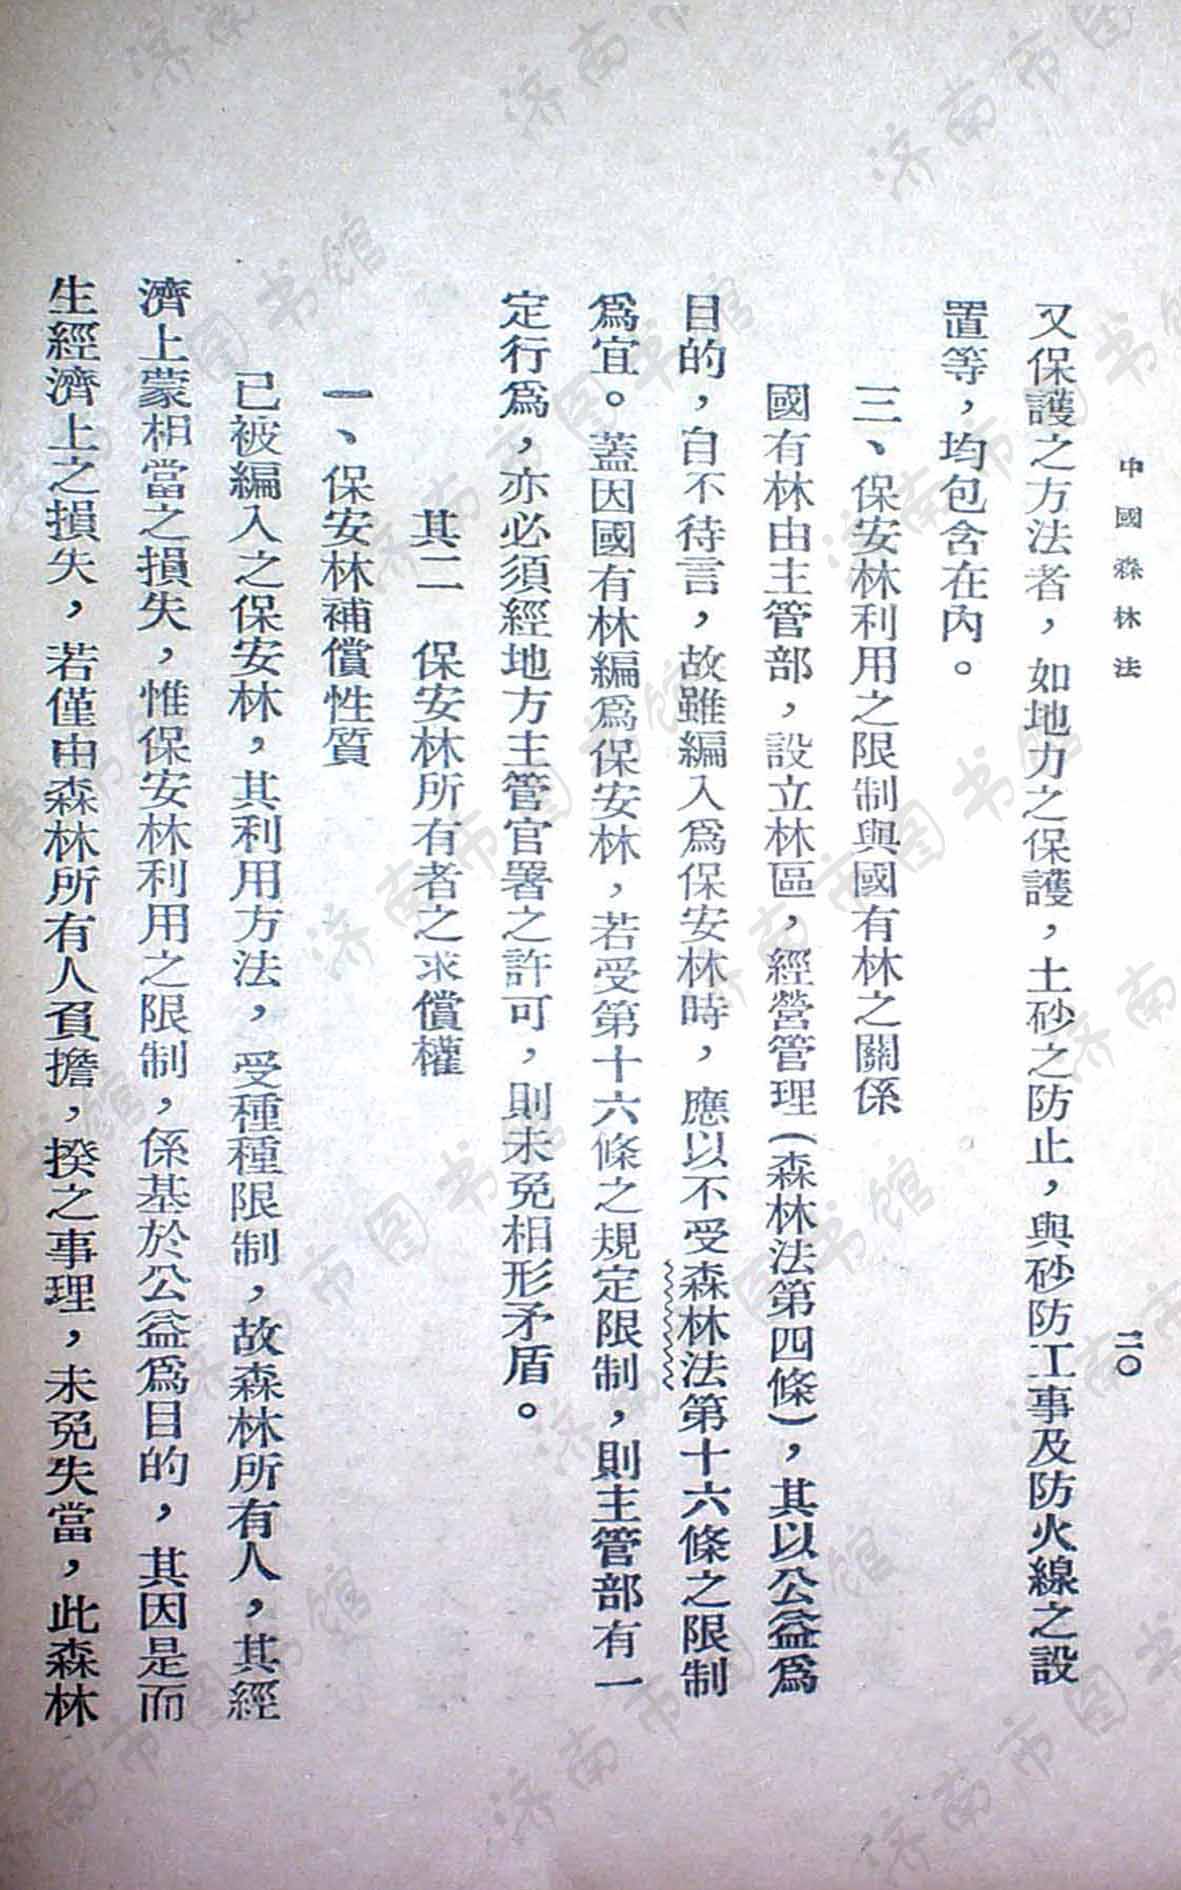 中國森林法
一一〇
又保護之方法者，如地力之保護，土砂之防止，與砂防工事及防火線之設
置等，均包含在內。
三、保安林利用之限制與國有林之關係
國有林由主管部，設立林區，經營管理（森林法第四條），其以公益爲
目的，自不待言，故雖編入爲保安林時，應以不受森林法第十六條之限制
爲宜。蓋因國有林編爲保安林，若受第十六條之規定限制，則主管部有一
定行爲，亦必須經地方主管官署之許可，則未免相形矛盾。
其二　保安林所有者之求償權
一、保安林補償性質
已被編入之保安林，其利用方法，受種種限制，故森林所有人，其經
濟上蒙相當之損失，惟保安林利用之限制，係基於公益爲目的，其因是而
生經濟上之損失，若僅由森林所有人負擔，揆之事理，未免失當，此森林
济南市图书馆